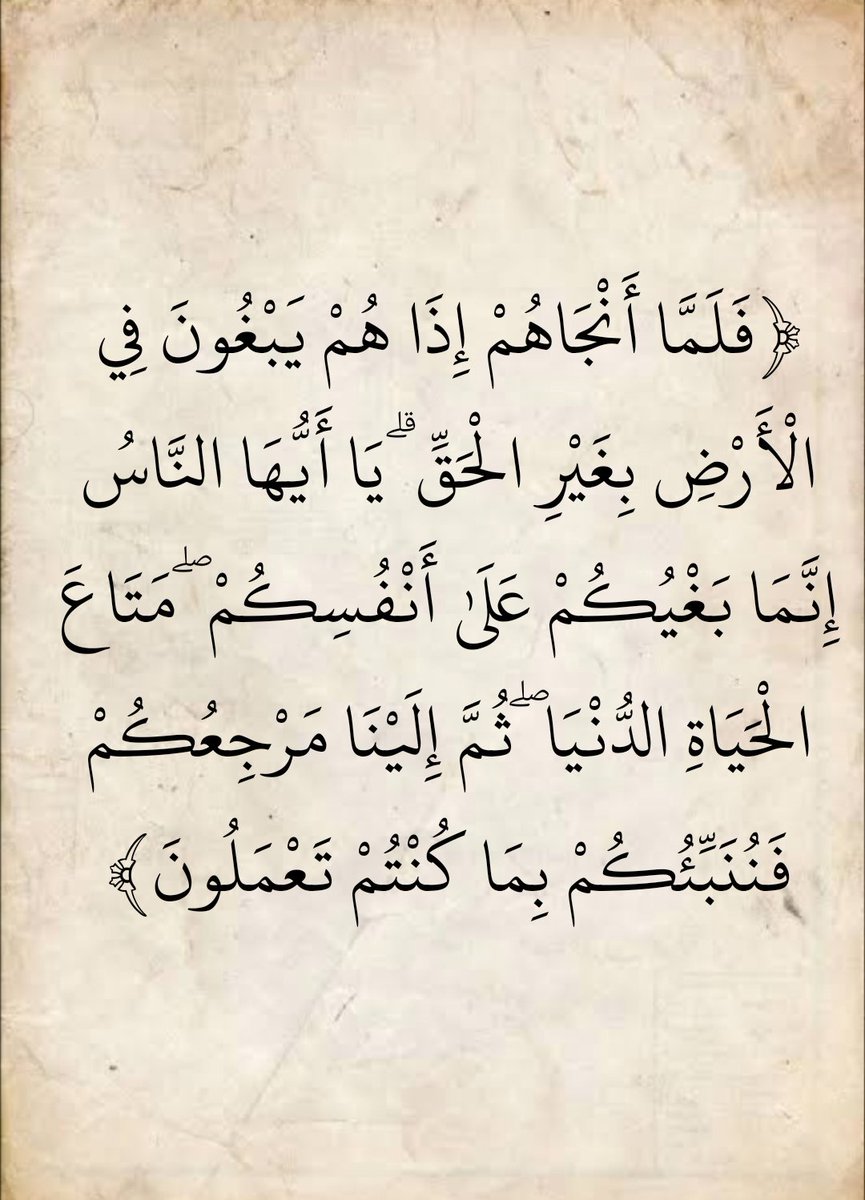 ﴿ فَلَمَّا أَنْجَاهُمْ إِذَا هُمْ يَبْغُونَ فِي
الْأَرْضِ بِغَيْرِ الْحَقِّ ۗ يَا أَيُّهَا النَّاسُ
إِنَّمَا بَغْيُكُمْ عَلَىٰ أَنْفُسِكُمْ ۖ مَتَاعَ
الْحَيَاةِ الدُّنْيَا ۖ ثُمَّ إِلَيْنَا مَرْجِعُكُمْ
فَنُنَبِّئُكُمْ بِمَا كُنْتُمْ تَعْمَلُونَ ﴾